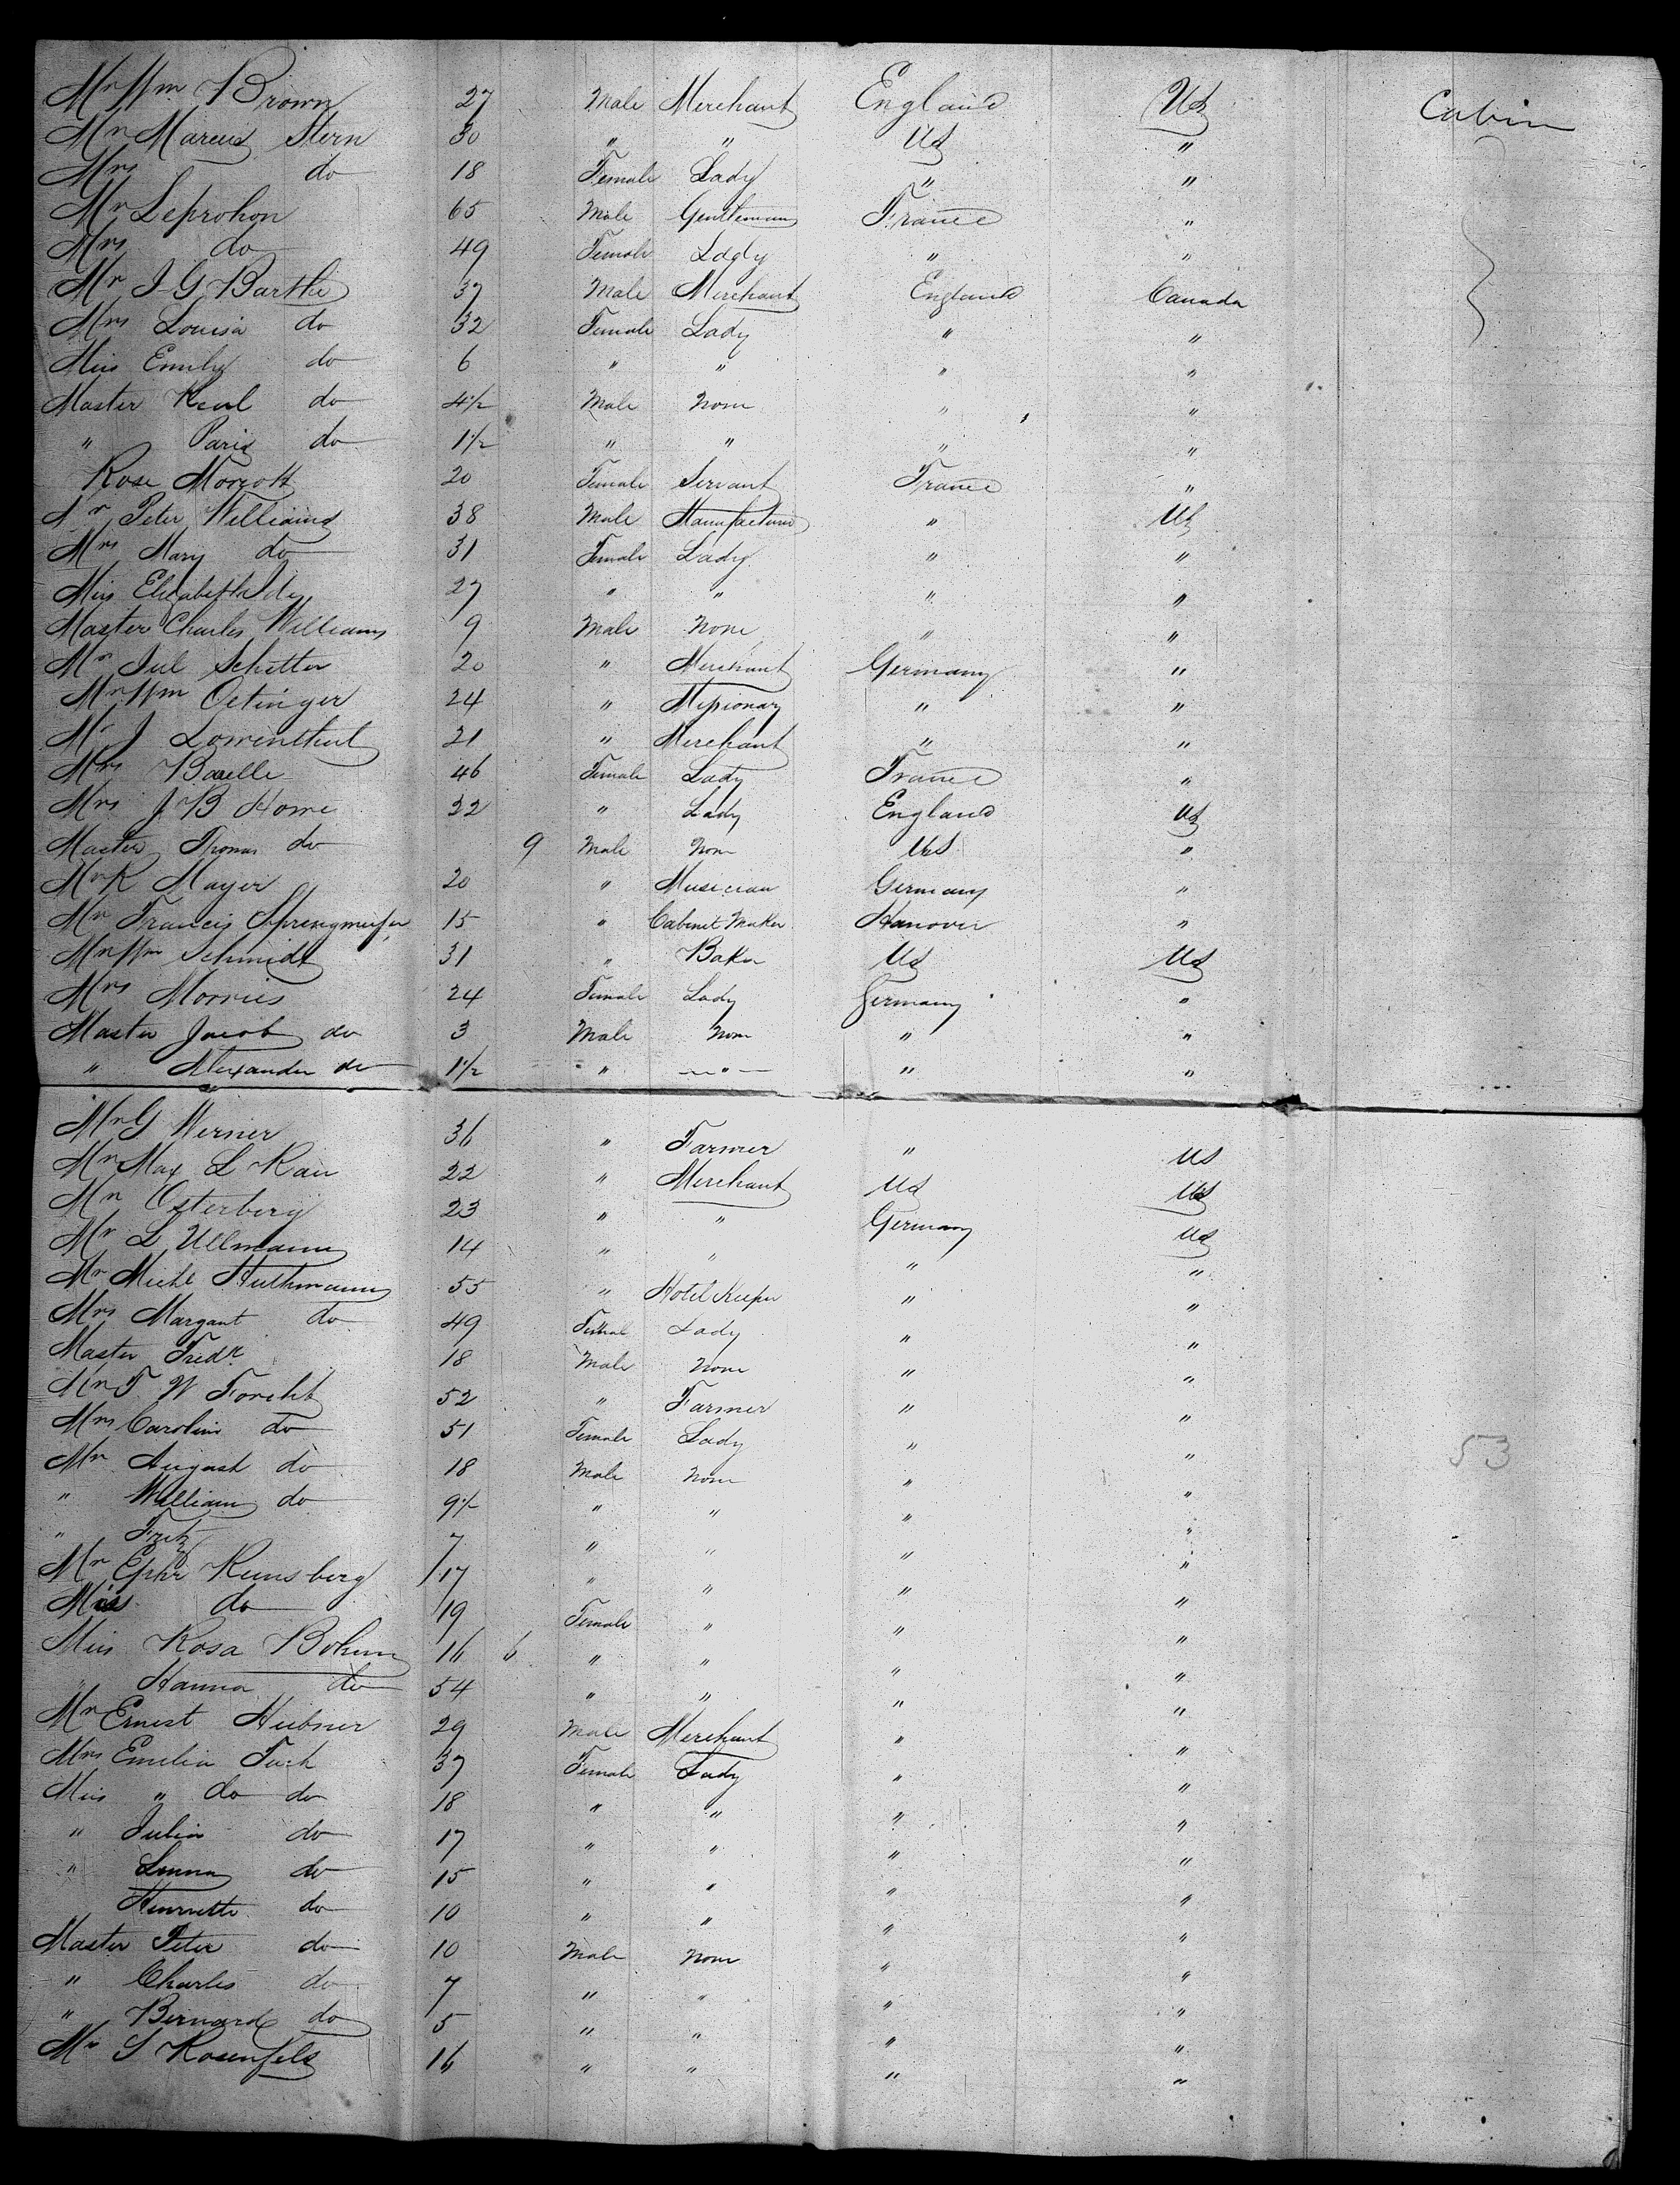 Mr Wm Brown 27 Male Merchant England US Cabin
Mr Marcus Stern 30 " " US "
Mrs do 18 Female Lady " "
Mr Leprohon 65 Male Gentleman France "
Mrs do 49 Female Lady " "
Mr J G Barthe 37 Male Merchant England Canada
Mrs Louisa do 32 Female Lady " "
Miss Emily do 6 " " " "
Master do 4½ Male None " "
" Paris do 1½ " " " "
Rose 20 Female Servant France "
Mr Peter Williams 38 Male " US
Mrs Mary do 31 Female Lady " "
Miss Elizabeth 27 " " " "
Master Charles Williams 9 Male None " "
Mr Jul 20 " Merchant Germany "
Mr Wm Oetinger 24 " Missionary " "
Mr J Lowenthal 21 " Merchant " "
Mrs 46 Female Lady France "
Mrs J B Howe 32 " Lady England US
Master Thomas do 9 Male None US "
Mr K Mayer 20 " Musician Germany "
Mr Francis 15 " Cabinet Maker Hanover "
Mr Wm Schmidt 31 " Baker US US
Mrs Morries 24 Female Lady Germany "
Master Jacob do 3 Male None " "
" Alexander do 1½ " " " "
Mr G Werner 36 " Farmer " US
Mr Max L Rau 22 " Merchant US US
Mr Osterberg 23 " " Germany US
Mr L Ullmann 14 " " " "
Mr Michl 55 " Hotel Keeper " "
Mrs Margaret do 49 Female Lady " "
Master Fredk 18 Male None " "
Mr F. W 52 " Farmer " "
Mrs Caroline do 51 Female Lady " "
Mr August do 18 Male None " " 53
" William do 9½ " " " "
" Fritz 7 " " " "
Mr Ephr 17 " " " "
Miss do 19 Female " " "
Miss Rosa 16 " " " "
" Hanna do 54 " " " "
Mr Ernest Huebner 29 Male Merchant " "
Mrs Emelia 37 Female Lady " "
Miss " do do 18 " " " "
" Julia do 17 " " " "
" do 15 " " " "
Henriette do 10 " " " "
Master Peter do 10 Male None " "
" Charles do 7 " " " "
" Bernard do 5 " " " "
Mr S Rosenfeld 16 " " " "